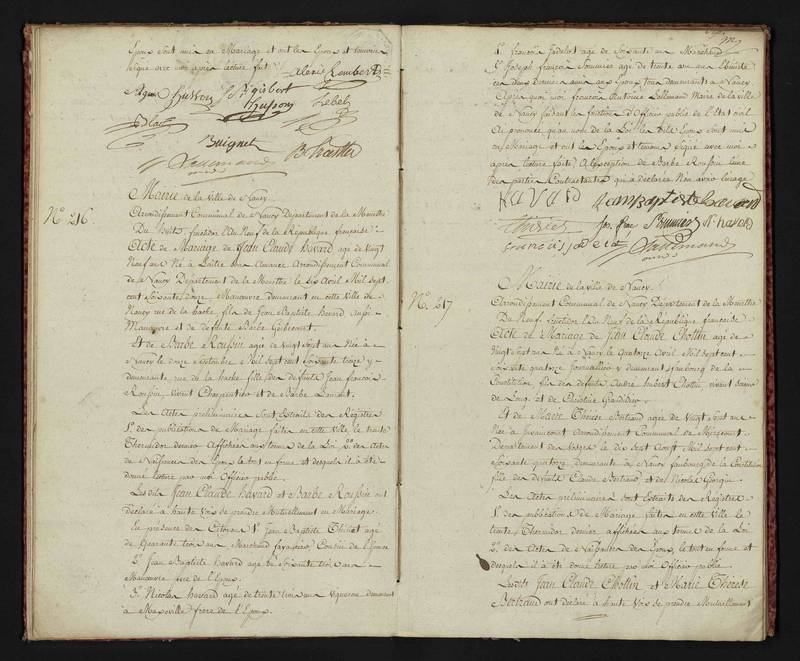 Epoux sont unis en Mariage et ont les Epoux et temoins
signé avec moi après lecture fait
Husson
Lebel
Buignet
Lallemand
N.º 216.
Mairie de la Ville de Nancy.
Arrondissement Communal de Nancy Département de la Meurthe
Du huit, fructidor an Neuf de la République française
Acte de Mariage de Jean Claude havard agé de Vingt
Neuf ans Né à Laitre sous Amance Arrondissement Communal
de Nancy Département de la Meurthe le six Avril Mil sept
cent soixante douze, Manœuvre demeurant en cette Ville de
Nancy rue de la hache, fils de Jean Baptiste havard aussi
Manœuvre et de défunte Barbe
Et de Barbe Roussin agée de Vingt sept ans Née à
Nancy le douze Mil sept cent soixante treize y
demeurante rue de la hache fille de défunt Jean françois
Roussin, vivant Charpentier et de Barbe
Les Actes préliminaires sont Extraits des Registres
1.º des publications de Mariage faites en cette Ville le trente
Thermidor dernier Affichées aux termes de la Loi 2.º des Actes
de Naissances des Epoux le tout en forme et desquels il a été
donné lecture par moi Officier public.
Lesdits Jean Claude havard et Barbe Roussin ont
Déclaré à haute Voix se prendre Mutuellement en Mariage.
En présence des Citoyens 1.º Jean Baptiste agé
de Quarante trois ans Marchand Cousin de l'Epouse
2.º Jean Baptiste havard agé de soixante trois ans
Manœuvre père de l'Epoux.
3.º Nicolas havard agé de trente trois ans Vigneron demeurant
à Maxeville frère de l'Epoux.
4.º françois Jadelot agé de soixante ans Marchand
5.º Joseph françois Sommier agé de trente ans
Ces deux Derniers amis aux Epoux tous demeurants à Nancy
Après quoi moi françois Antoine Lallemand Maire de la Ville
de Nancy faisant les fonctions d'Officier public de l'Etat civil
Ai prononcé qu'au nom de la Loi les dits Epoux sont unis
en Mariage et ont les Epoux et temoins signé avec moi
après lecture faite à l'Exception de Barbe Roussin l'une
des parties Contractantes qui a déclaré Non avoir l'usage
havard Jean Baptiste havard
Jos. fran Sommier N. havard
Lallemand
N.º 217
Mairie de la Ville de Nancy.
Arrondissement Communal de Nancy Département de la Meurthe
Du Neuf fructidor l'An Neuf de la République française
Acte de Mariage de Jean Claude Chottin agé de
Vingt sept ans Né à Nancy le Quatorze Avril Mil sept cent
soixante quatorze Journalier y demeurant faubourg de la
Constitution fils des défunts André hubert Chottin, vivant
et de Christine
Et de Marie Thérèse Bertrand agée de Vingt sept ans
Née à Arrondissement Communal de Mirecourt
Département des Vosges le dix sept Aoust Mil sept cent
soixante quatorze, demeurante à Nancy faubourg de la Constitution
fille des défunts Claude Bertrand et de Nicole
Les Actes préliminaires sont Extraits des Registres
1.º des publications de Mariage faites en cette Ville le
trente Thermidor dernier, affichées aux termes de la Loi
2.º des Actes de Naissances des Epoux, le tout en forme et
desquels il a été donné lecture par moi Officier public.
Lesdits Jean Claude Chottin et Marie Thérèse
Bertrand ont déclaré à haute Voix se prendre Mutuellement